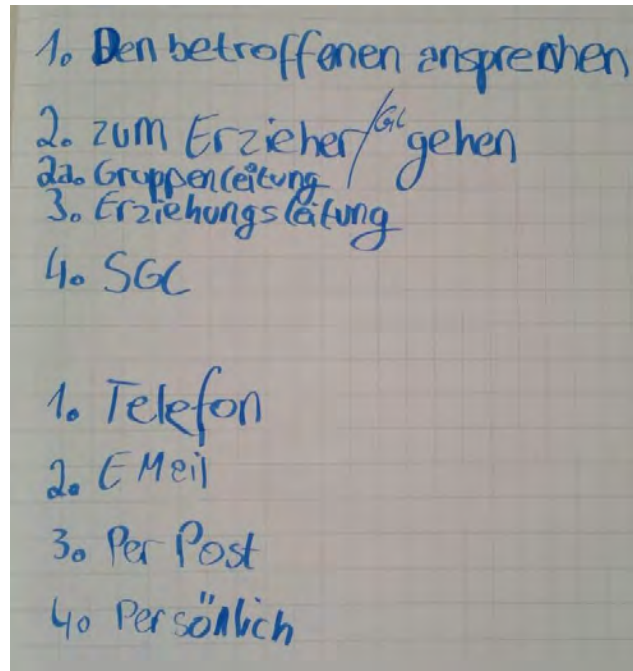 1. Den betroffenen ansprechen
2. zum Erzieher/GL gehen
2a. Gruppenleitung
3. Erziehungsleitung
4. SGL
1. Telefon
2. E Meil
3. Per Post
4. Persönlich